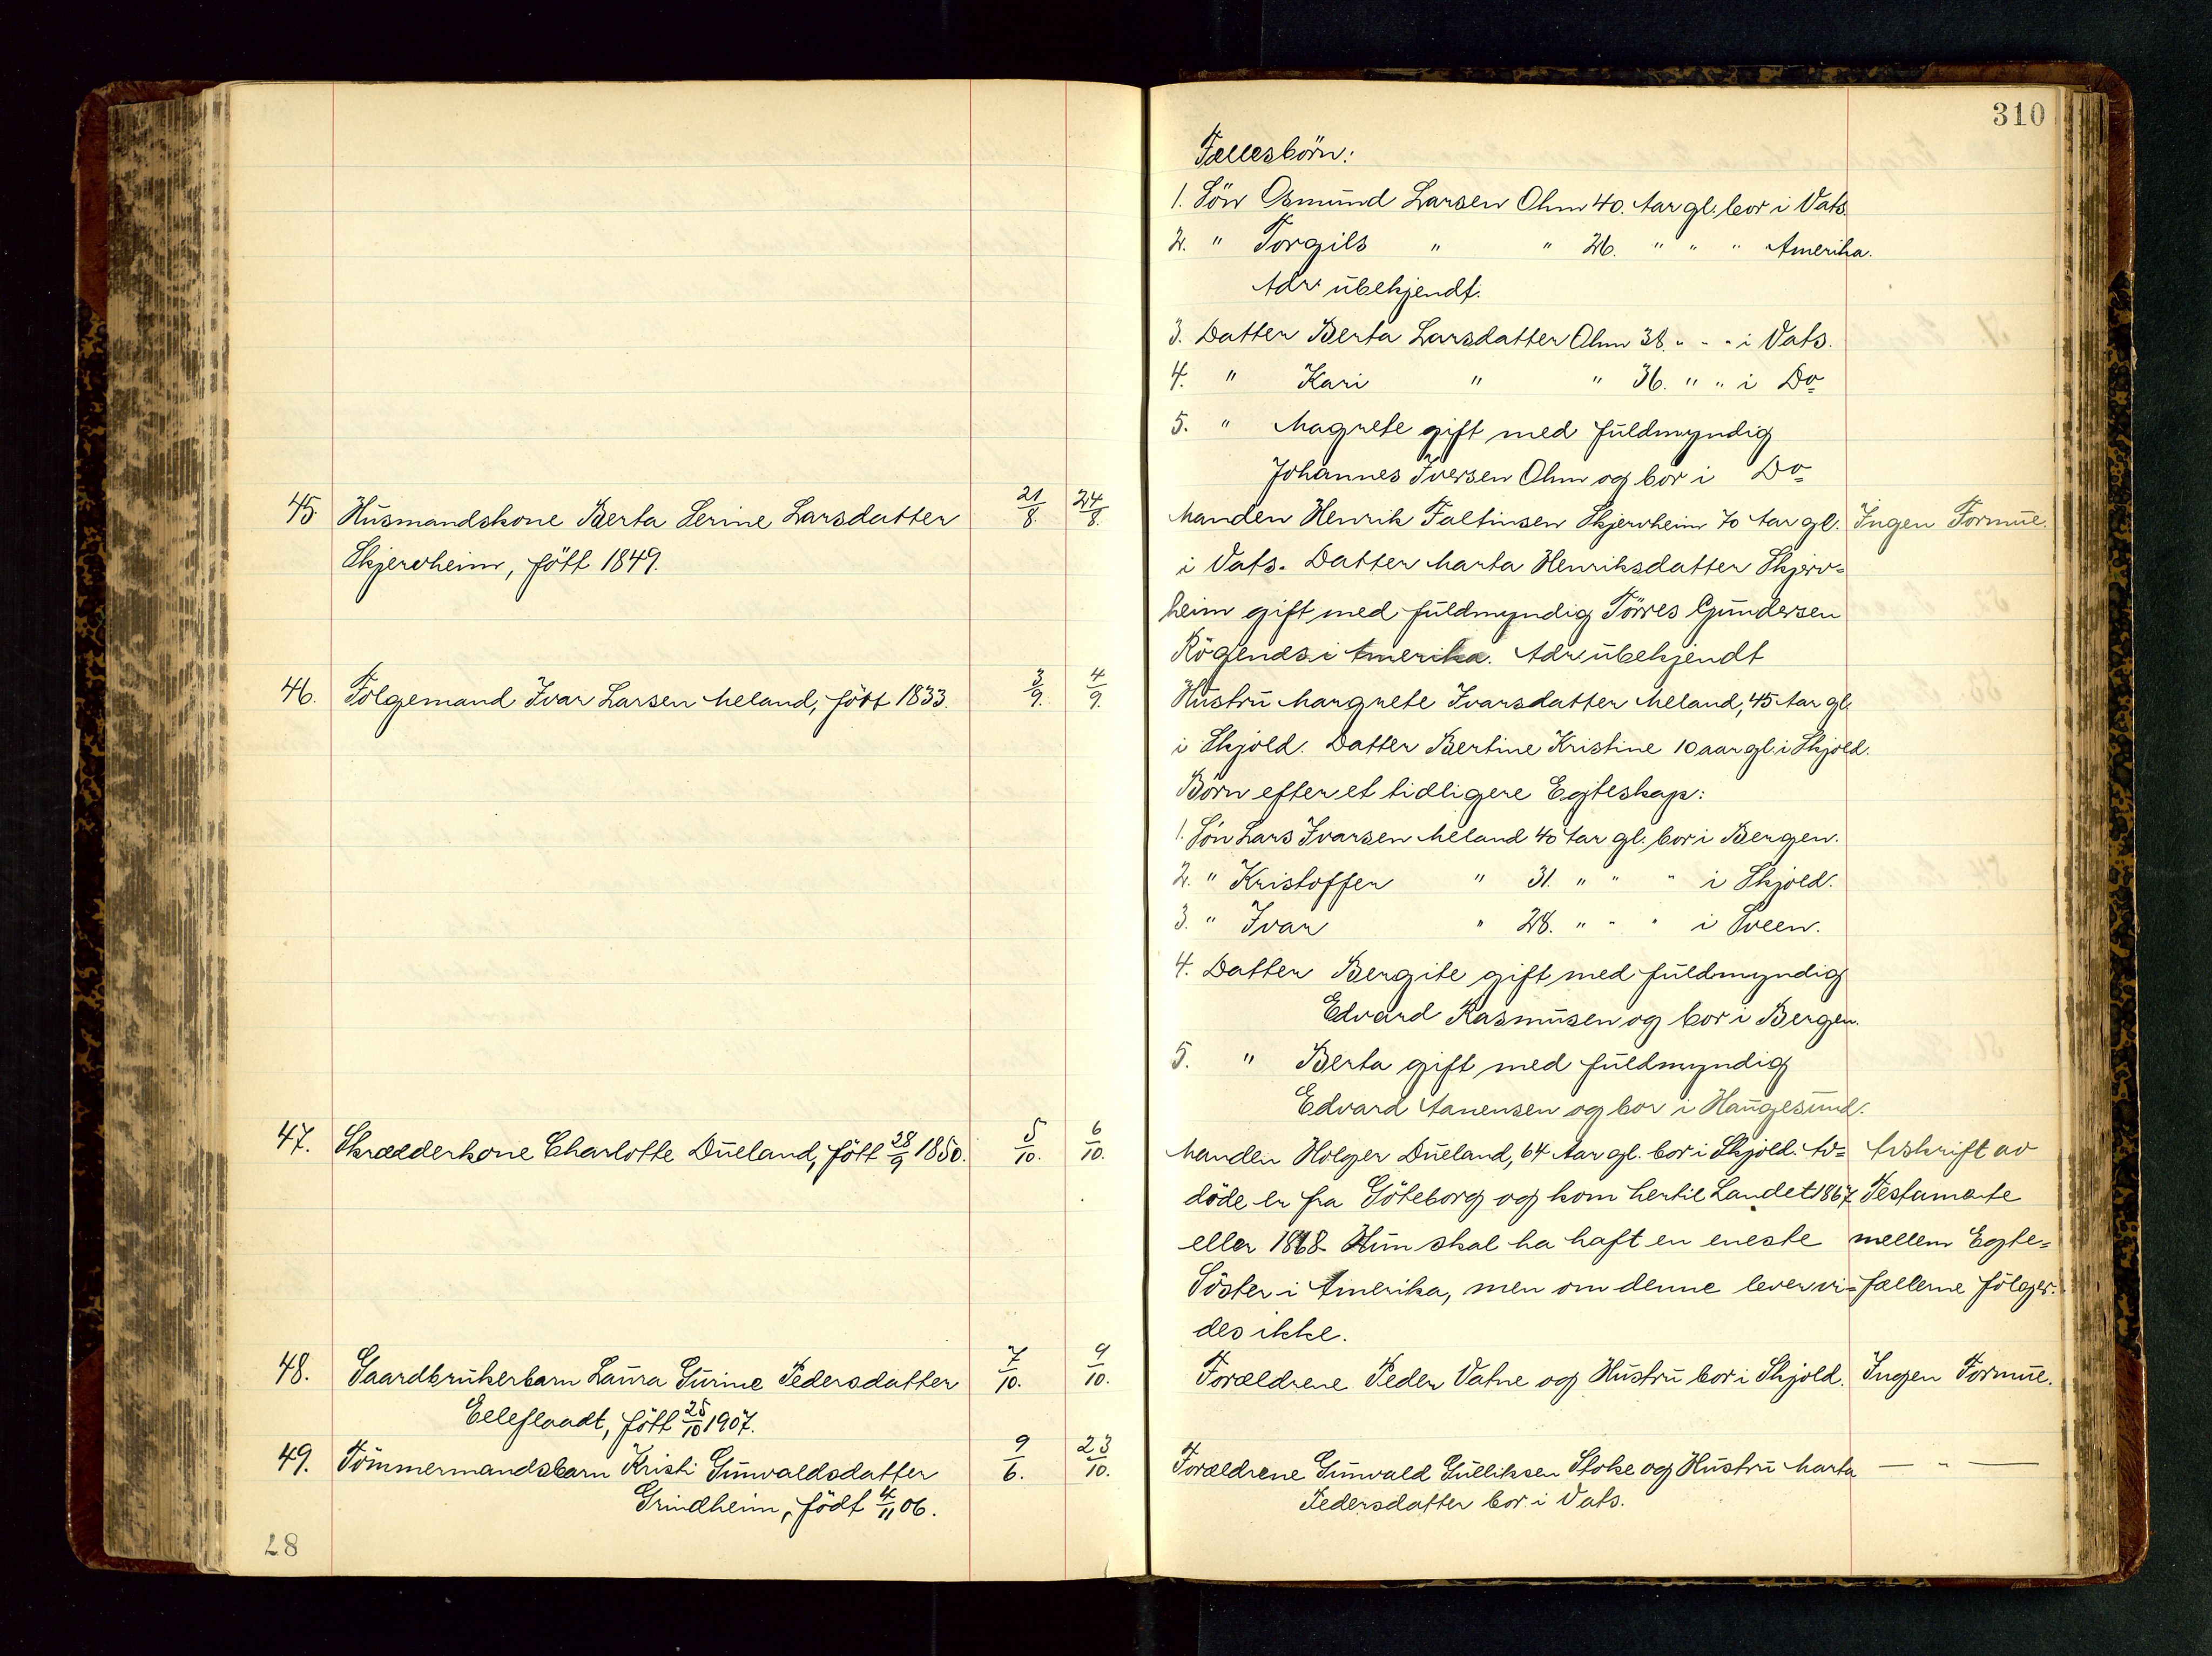 310
Fællesbörn:
1. Sön Osmund Larsen Ohm 40. Aar gl. bor i Vats
2. " Torgils " " 26. " " " Amerika.
Adr ubekjendt.
3. Datter Berta Larsdatter Ohm 38. " " " i Vats.
4. " Kari " " 36. " " i Do
5. " Magrete gift med fuldmyndig
Johannes Iversen Ohm og bor i Do
45. Husmandskone Berta Serine Larsdatter 21/8. 24/8. Manden Henrik Faltinsen Skjervheim 70 Aar gl. Ingen Formue.
Skjervheim, fött 1849. i Vats. Datter Marta Henriksdatter Skjerv=
heim gift med fuldmyndig Törres Gundersen
i Amerika. Adr ubekjendt
46. Folgemand Ivar Larsen Meland, fött 1833. 3/9. 4/9. Hustru Margrete Ivarsdatter Meland, 45 Aar gl.
i Skjold. Datter Bertine Kristine 10 aar gl. i Skjold.
Börn efter et tidligere Egteskap:
1. Sön Lars Ivarsen Meland 40 Aar gl. bor i Bergen.
2. " Kristoffer " 31. " " " i Skjold.
3. " Ivar " 28. " " " i Sveen.
4. Datter Bergite gift med fuldmyndig
Edvard Rasmusen og bor i Bergen.
5. " Berta gift med fuldmyndig
Edvard Aanensen og bor i Haugesund.
47. Skrædderkone Charlotte Dueland, fött 28/9 1850. 5/10. 6/10. Manden Holger Dueland, 64 Aar gl. bor i Skjold. Av= Avskrift av
döde er fra Göteborg og kom hertil Landet 1867 Testamente
eller 1868. Hun skal ha haft en eneste mellem Egte=
Söster i Amerika, men om denne lever vi= fællerne fölger.
des ikke.
48. Gaardbrukerbarn Laura Gurine Pedersdatter 7/10. 9/10. Forældrene Peder Vatne og Hustru bor i Skjold. Ingen Formue.
Eeleflaadt, fött 25/10 1907.
49. Tömmermandsbarn Kristi Gunvaldsdatter 9/6. 23/10. Forældrene Gunvald Gulliksen Stoke og Hustru Marta — " —
Grindheim, födt 4/11 06. Pedersdatter bor i Vats.
28